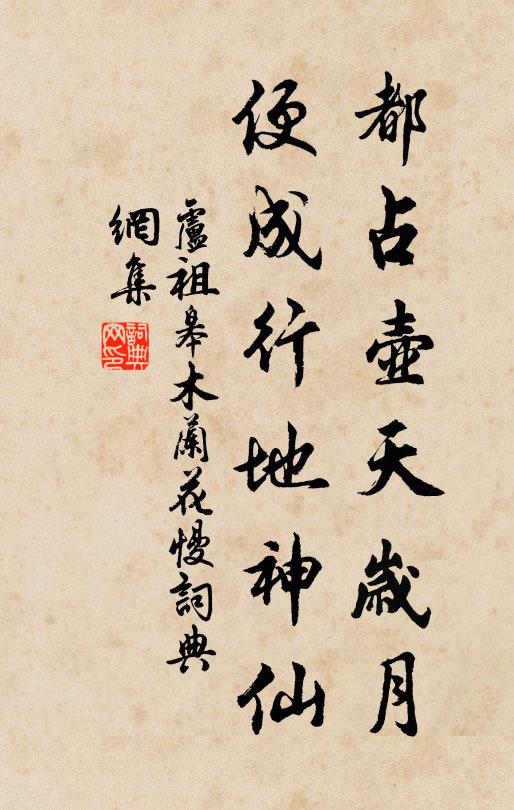 都占壺天歲月
便成行地神仙
盧祖皋木蘭花慢詞典
網集
詞典網印